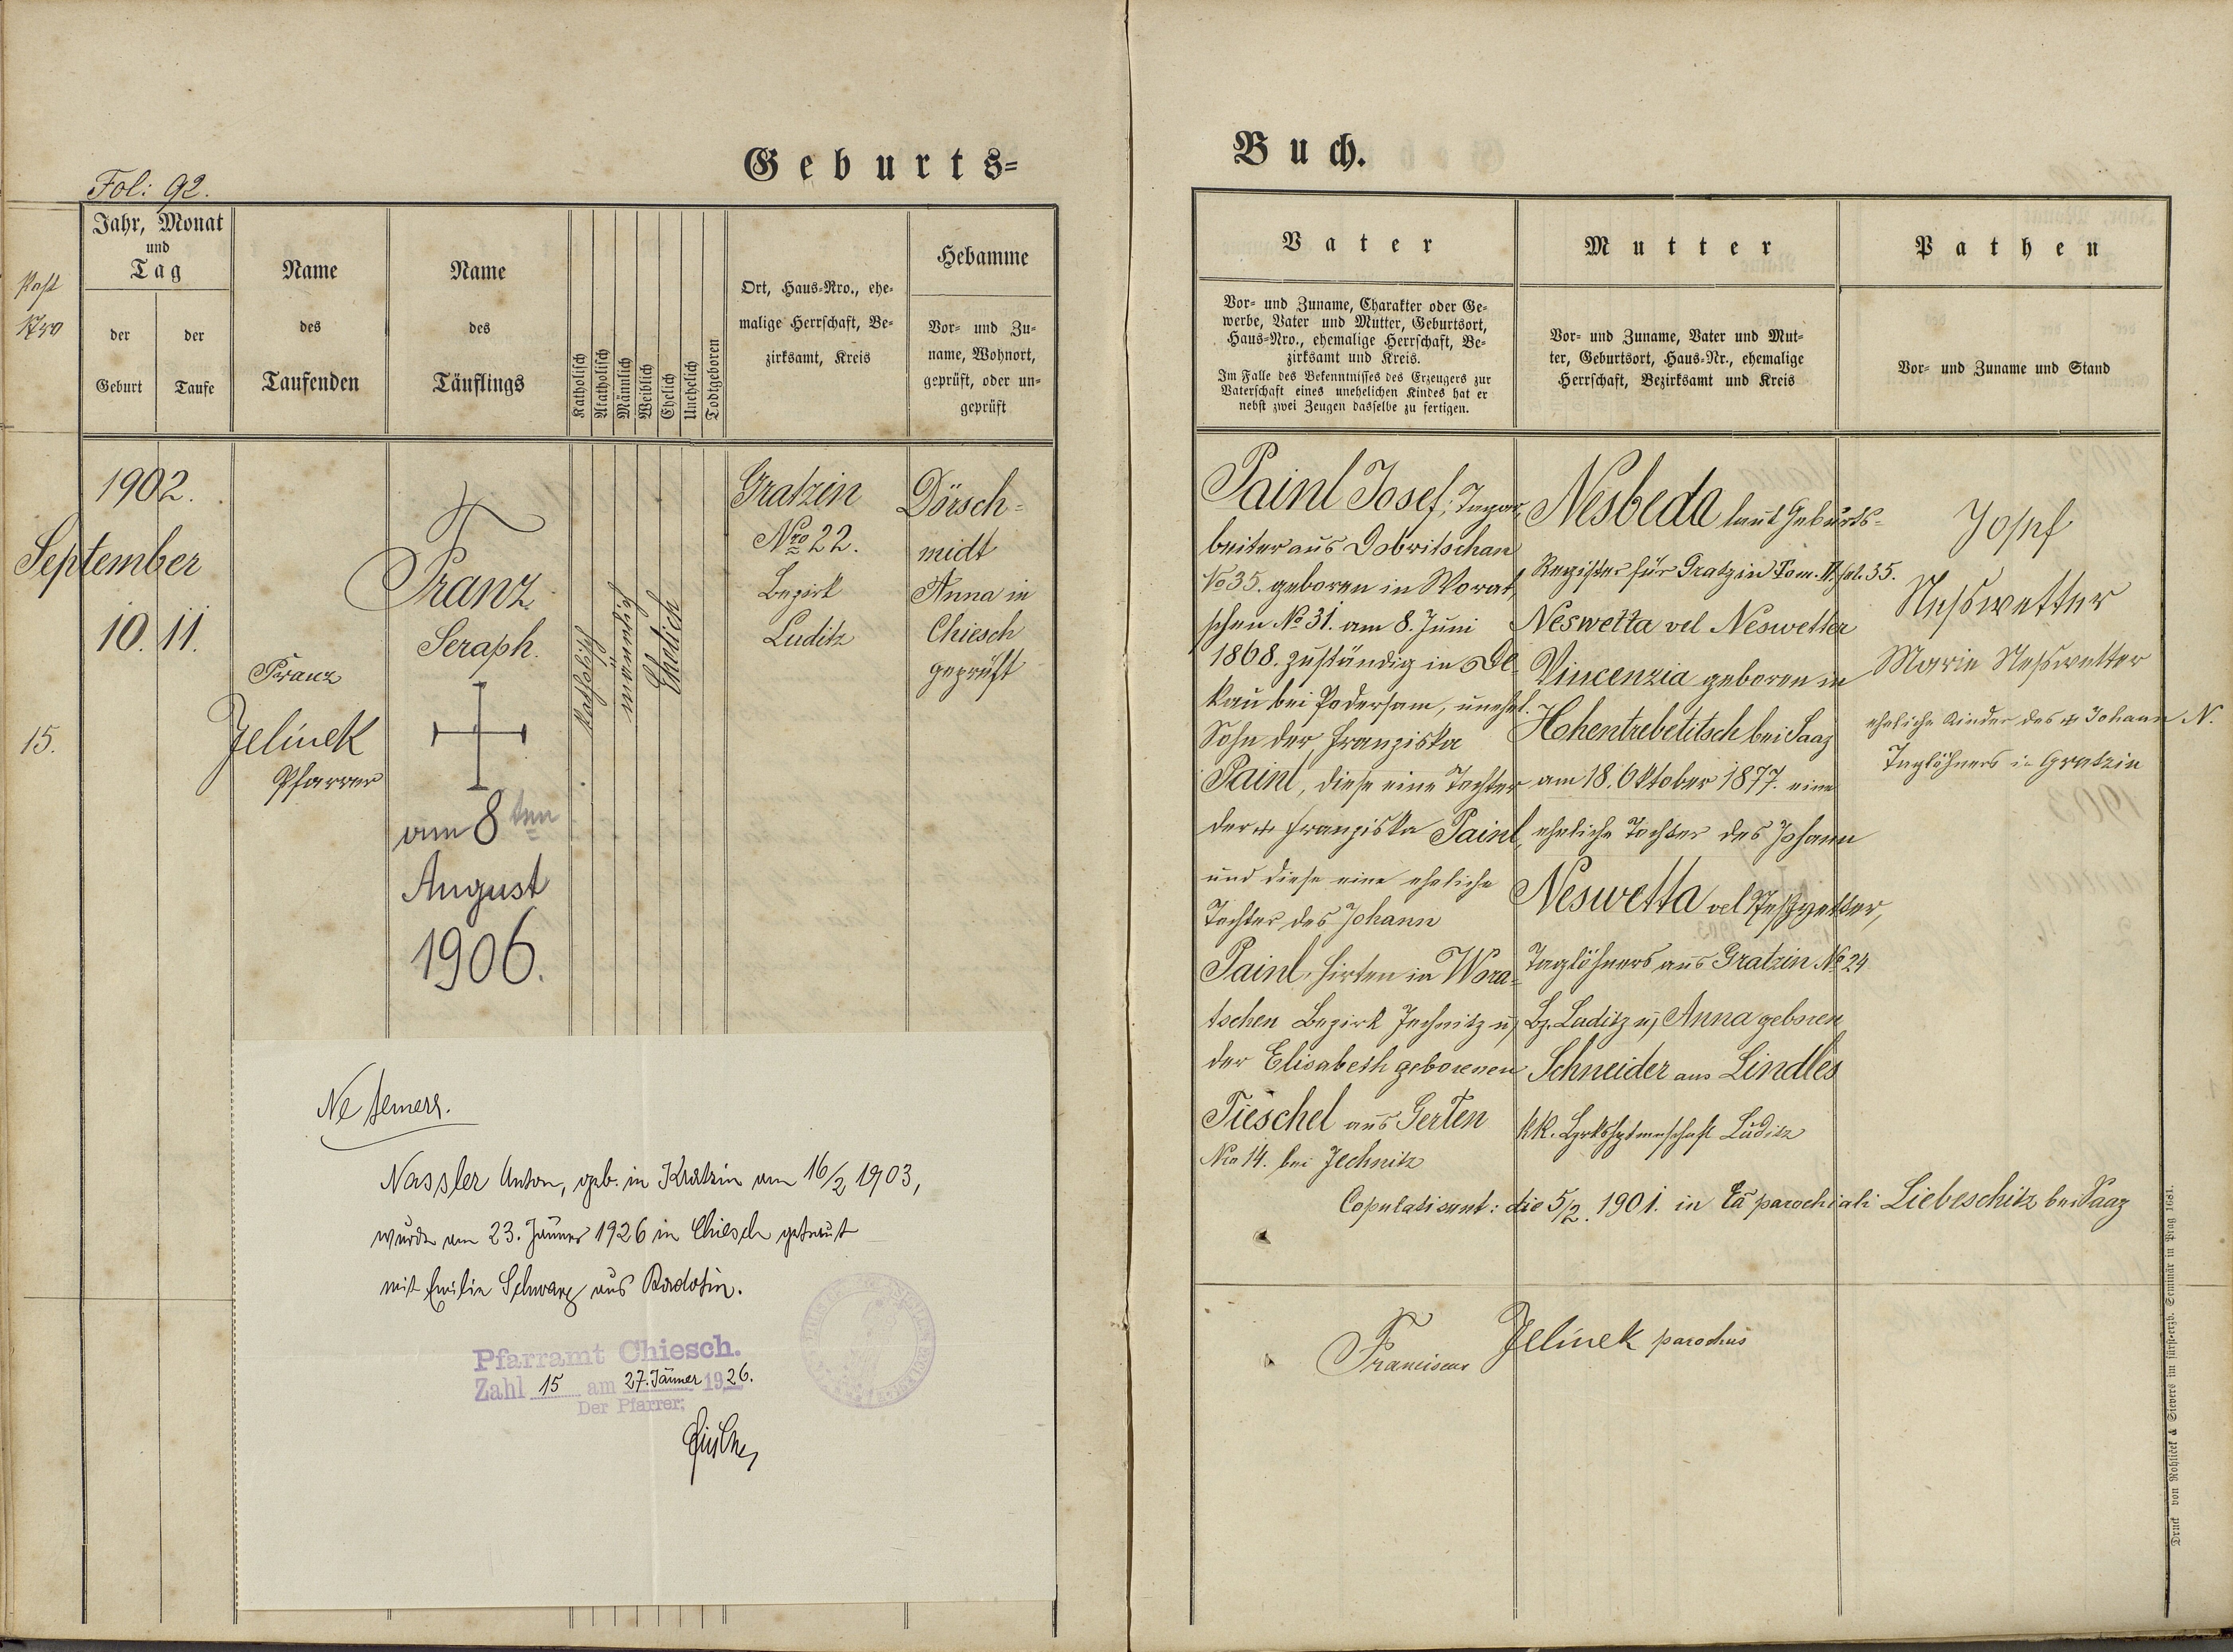 Geburts-
Fol: 92.
Jahr, Monat
und
Tag
der
Geburt
der
Taufe
Name
des
Taufenden
Name
des
Täuflings
Katholisch
Akatholisch
Männlich
Weiblich
Ehelich
Unehelich
Todtgeboren
Ort, Haus-Nro., ehe-
malige Herrschaft, Be-
zirksamt, Kreis
Hebamme
Vor- und Zu-
name, Wohnort,
geprüft, oder un-
geprüft
Post
Nro
1902.
September
10. 11.
15.
Franz
Jelínek
Pfarrer
Franz
Seraph.
am 8ten
August
1906.
katholisch
männlich
Ehelich
Gratzin
Nro 22.
Bezirk
Luditz
Dörsch-
midt
Anna in
Chiesch
geprüft
Ne temere.
Nassler Anton, geb. in Kratzin am 16/2 1903,
wurde am 23. Jänner 1926 in Chiesch getraut
mit Emilie Schwarz aus Radotin.
Pfarramt Chiesch.
Zahl 15 am 27. Jänner 1926.
Der Pfarrer:
Buch.
Vater
Vor- und Zuname, Charakter oder Ge-
werbe, Vater und Mutter, Geburtsort,
Haus-Nro., ehemalige Herrschaft, Be-
zirksamt und Kreis.
Im Falle des Bekenntnisses des Erzeugers zur
Vaterschaft eines unehelichen Kindes hat er
nebst zwei Zeugen dasselbe zu fertigen.
Mutter
Vor- und Zuname, Vater und Mut-
ter, Geburtsort, Haus-Nr., ehemalige
Herrschaft, Bezirksamt und Kreis
Pathen
Vor- und Zuname und Stand
Painl Josef, Tagar-
beiter aus Dobritschan
No 35. geboren in Worat-
schen No 31. am 8. Juni
1868. zuständig in De-
kau bei Podersam, unehel.
Sohn der Franziska
Painl, diese eine Tochter
der + Franziska Painl,
und diese eine eheliche
Tochter des Johann
Painl, Hirten in Wora-
tschen Bezirk Jechnitz u,
der Elisabeth geborenen
Tieschel aus Gerten
Nro 14. bei Jechnitz
Nesbeda laut Geburts-
Register für Gratzin Tom. II. fol. 35.
Neswetta vel Neswetter
Vincenzia geboren in
Hohentrebetitsch bei Saaz
am 18. Oktober 1877. eine
eheliche Tochter des Johann
Neswetta vel Neßwetter,
Taglöhners aus Gratzin No 24
Bz. Luditz u, Anna geboren
Schneider aus Lindles
kk. Bzrkshptmnschaft Luditz
Josef
Neßwetter
Marie Neßwetter
eheliche Kinder des + Johann N.
Taglöhners in Gratzin
Copulati sunt: die 5/2. 1901. in Ecã parochiali Liebeschitz bei Saaz
Franciscus Jelínek parochus
Druck von Rohliček & Sievers im fürst-erzb. Seminär in Prag 1681.